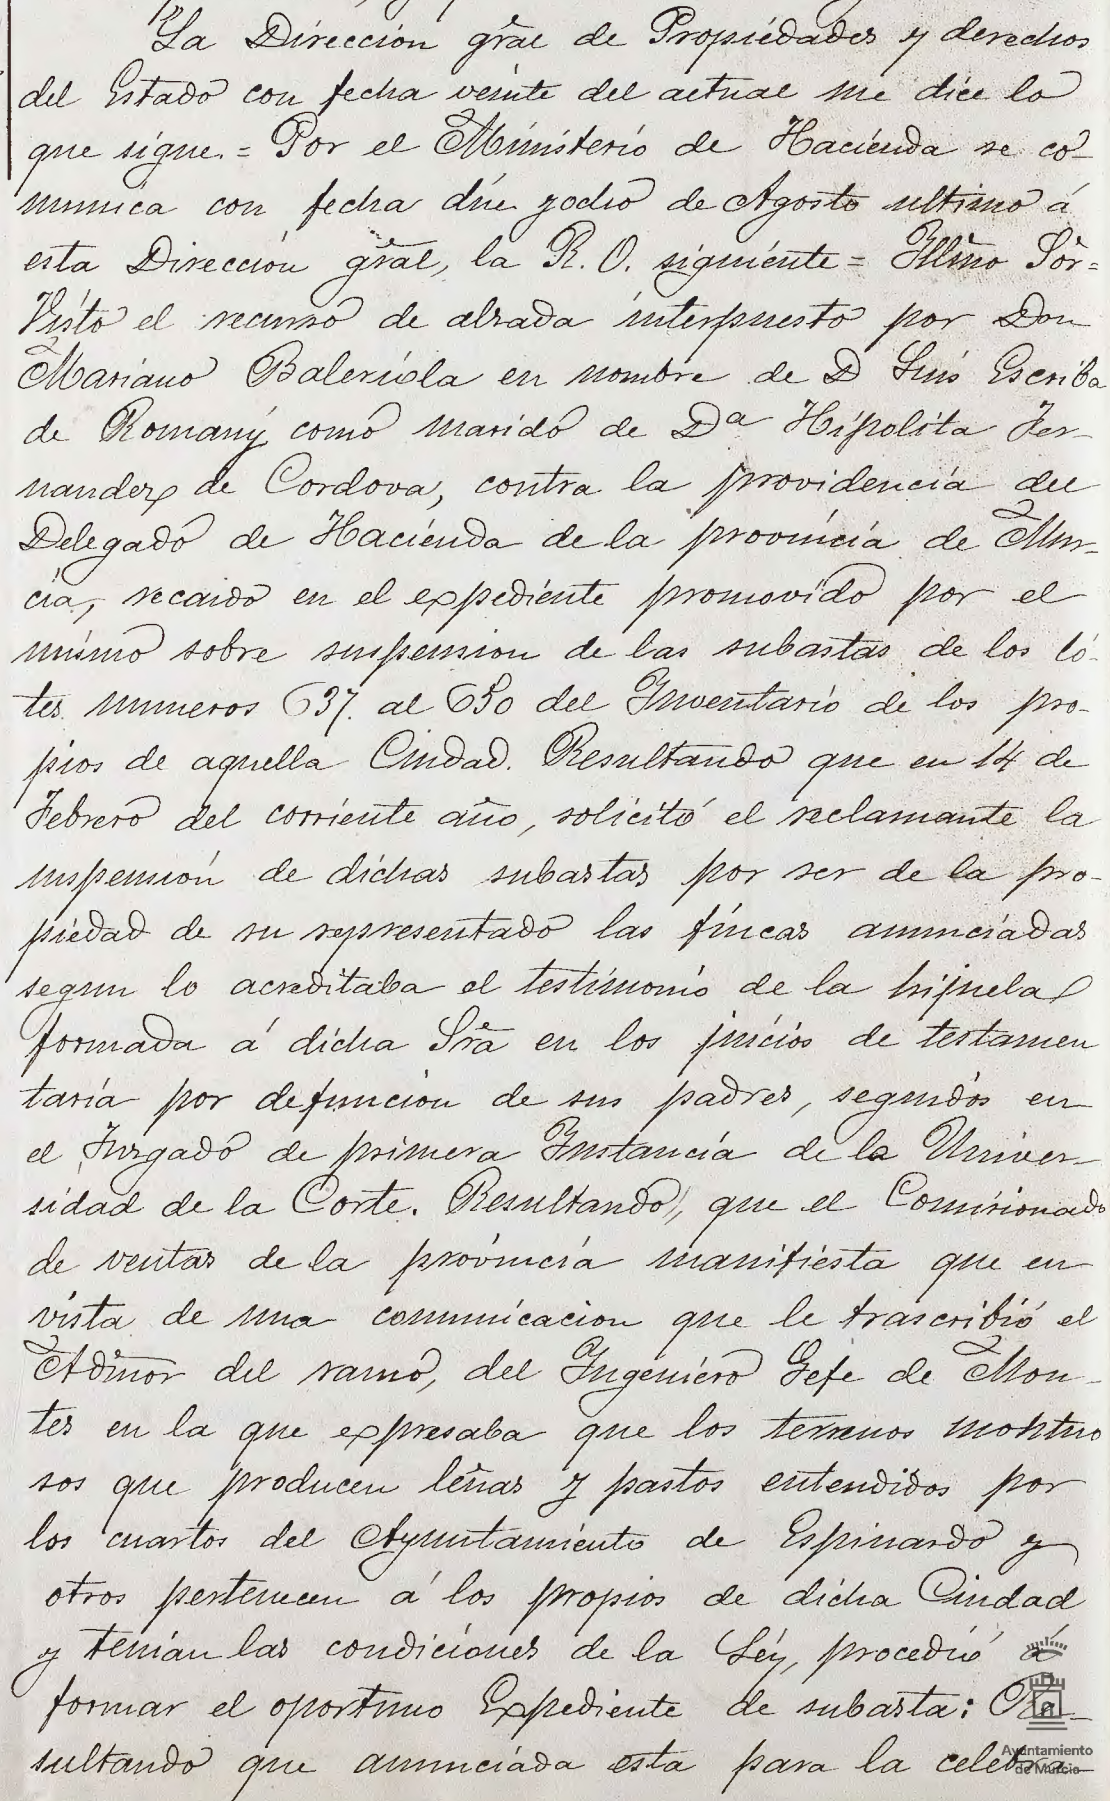 La Direccion gral de Propiedades y derechos
del Estado con fecha veinte del actual me dice lo
que sigue. = Por el Ministerio de Hacienda se co-
munica con fecha diez y ocho de Agosto ultimo á
esta Direccion gral, la R. O. siguiente = Illmo Sor=
Visto el recurso de alzada interpuesto por Don
Mariano Baleriola en nombre de D Luis Escriba
de Romany como marido de Da Hipolita Fer-
nandez de Cordova, contra la providencia del
Delegado de Hacienda de la provincia de Mur-
cia, recaido en el expediente promovido por el
mismo sobre suspension de las subastas de los ló-
tes numeros 637 al 650 del Inventario de los pro-
pios de aquella Ciudad. Resultando que en 14 de
Febrero del corriente año, solicitó el reclamante la
suspension de dichas subastas por ser de la pro-
piedad de su representado las fincas anunciadas
segun lo acreditaba el testimonio de la hijuela
formada á dicha Sra en los juicios de testamen
taria por defuncion de sus padres, seguidos en
el Juzgado de primera Instancia de la Univer-
sidad de la Corte. Resultando, que el Comisionado
de ventas de la provincia manifiesta que en
vista de una comunicacion que le trascribió el
Admor del ramo, del Ingeniero Gefe de Mon-
tes en la que expresaba que los terrenos montuo
sos que producen leñas y pastos entendidos por
los cuartos del Ayuntamiento de Espinardo y
otros pertenecen á los propios de dicha Ciudad
y tenian las condiciones de la Ley, procedió á
formar el oportuno Expediente de subasta: Re-
sultando que anunciada esta para la celebra-
Ayuntamiento
de Murcia